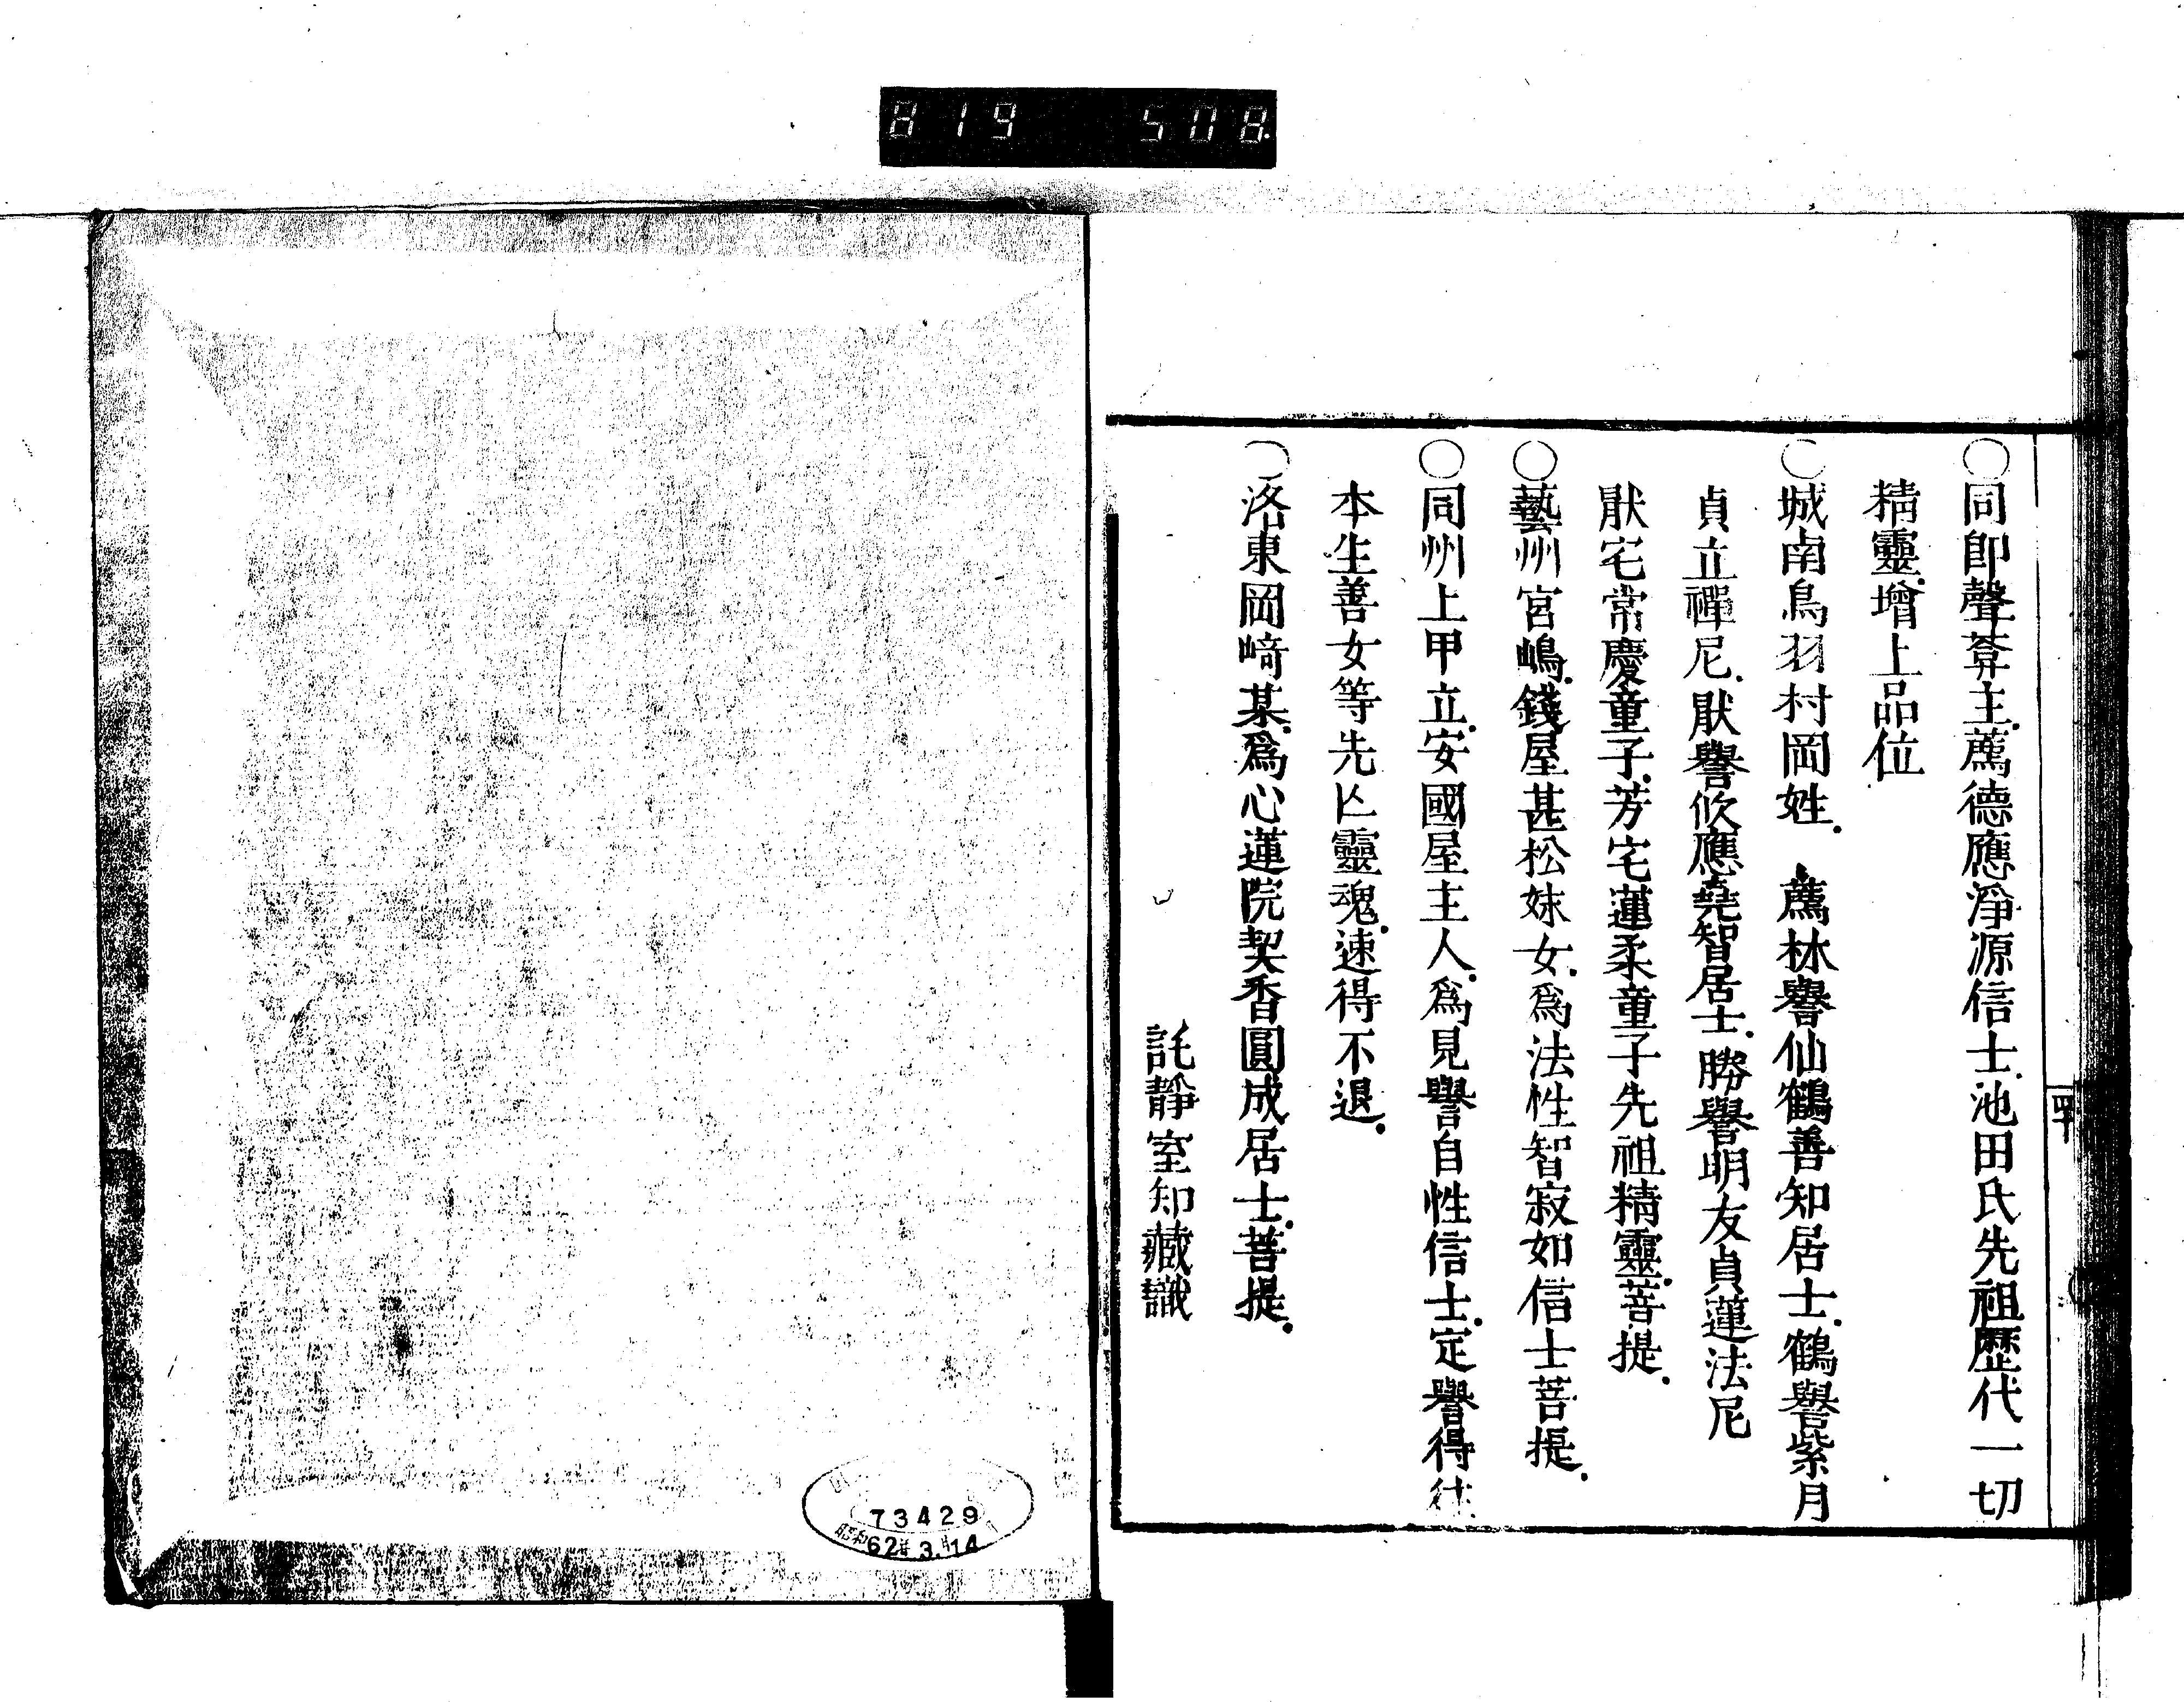 819 508
〇同卽聲菴主.薦德應淨源信士.池田氏先祖歷代一切
精靈.增上品位
〇城南鳥羽村岡姓.　薦林譽仙鶴善知居士.鶴譽紫月
貞立禪尼.猒譽攸應堯智居士.勝譽明友貞蓮法尼
猒宅常慶童子.芳宅蓮柔童子先祖精靈.菩提.
〇藝州宮嶋.錢屋甚松妹女.爲法性智寂如信士菩提.
〇同州上甲立.安國屋主人.爲見譽自性信士.定譽得往
本生善女等先亾靈魂.速得不退.
〇洛東岡﨑某.爲心蓮院契香圓成居士.菩提.
託靜室知藏識
73429
昭和62年3月14